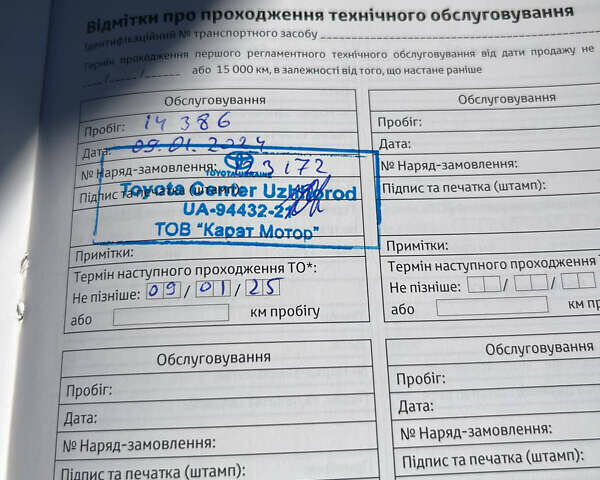 Відмітки про проходження технічного обслуговування
Ідентифікаційний № транспортного засобу
Термін проходження першого регламентного технічного обслуговування від дати продажу не
__/__/__ або 15 000 км, в залежності від того, що настане раніше
Обслуговування
Пробіг: 14 386
Дата: 09.01.2024
№ Наряд-замовлення: 93172
TOYOTA UKRAINE
Підпис та печатка (штамп):
Toyota Center Uzhhorod
UA-94432-2
ТОВ "Карат Мотор"
Примітки:
Термін наступного проходження ТО*:
Не пізніше: 09/01/25
або км пробігу
Обслуговування
Пробіг:
Дата:
№ Наряд-замовлення:
Підпис та печатка (штамп):
Примітки:
Термін наступного проходження
Не пізніше: / /
або км п
Обслуговування
Пробіг:
Дата:
№ Наряд-замовлення:
Підпис та печатка (штамп):
Обслуговування
Пробіг:
Дата:
№ Наряд-замовлення:
Підпис та печатка (штамп):